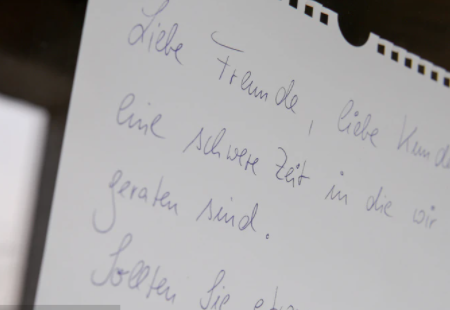 Liebe Freunde, liebe Kund
eine schwere Zeit in die wir
geraten sind.
Sollten Sie etw